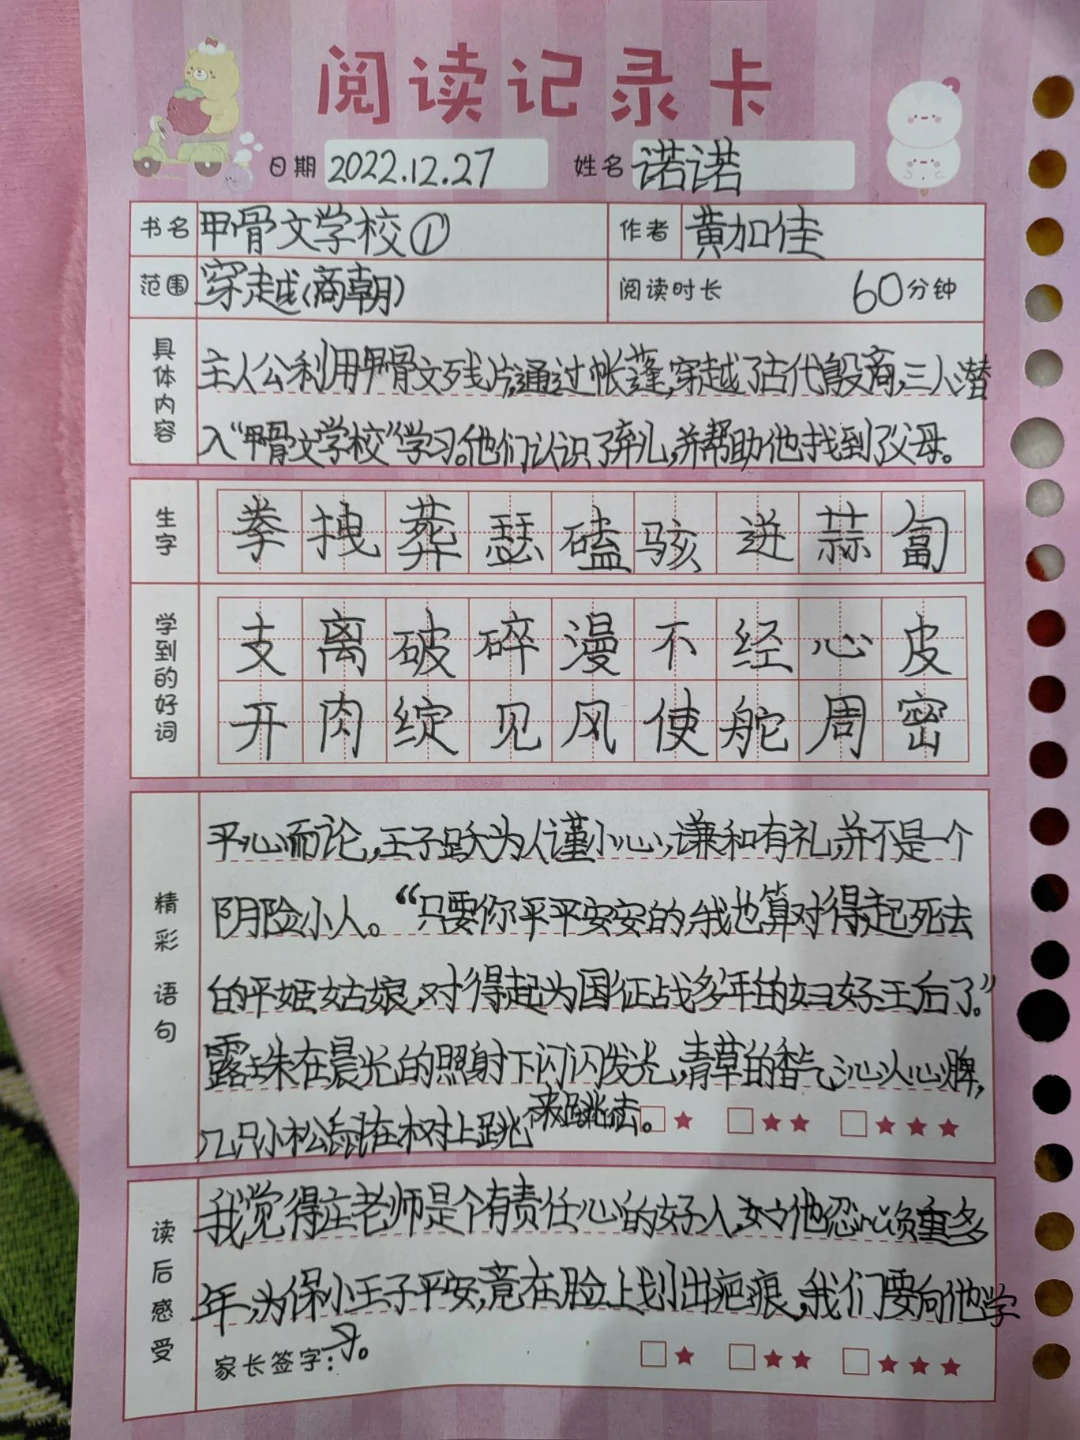 阅读记录卡
日期 2022.12.27 姓名 诺诺
书名 甲骨文学校① 作者 黄加佳
范围 穿越(商朝) 阅读时长 60分钟
具体内容
主人公利用甲骨文残片,通过帐篷,穿越了古代殷商,三人潜
入“甲骨文学校”学习。他们认识了弃儿,并帮助他找到了父母。
生字
拳 拽 葬 瑟 磕 骇 迸 蒜 匐
学到的好词
支离破碎漫不经心皮
开肉绽见风使舵周密
精彩语句
平心而论,王子跃为人谨小心,谦和有礼,并不是一个
阴险小人。“只要你平平安安的,我也算对得起死去
的平姬姑娘,对得起为国征战多年的妇好王后了。”
露珠在晨光的照射下闪闪发光,青草的香气沁人心脾,
几只小松鼠在树上跳来跳去。
★ ★★ ★★★
读后感受
我觉得庄老师是个有责任心的好人,他忍辱负重多
年,为保小王子平安,竟在脸上划出疤痕,我们要向他学
习。
家长签字:
★ ★★ ★★★